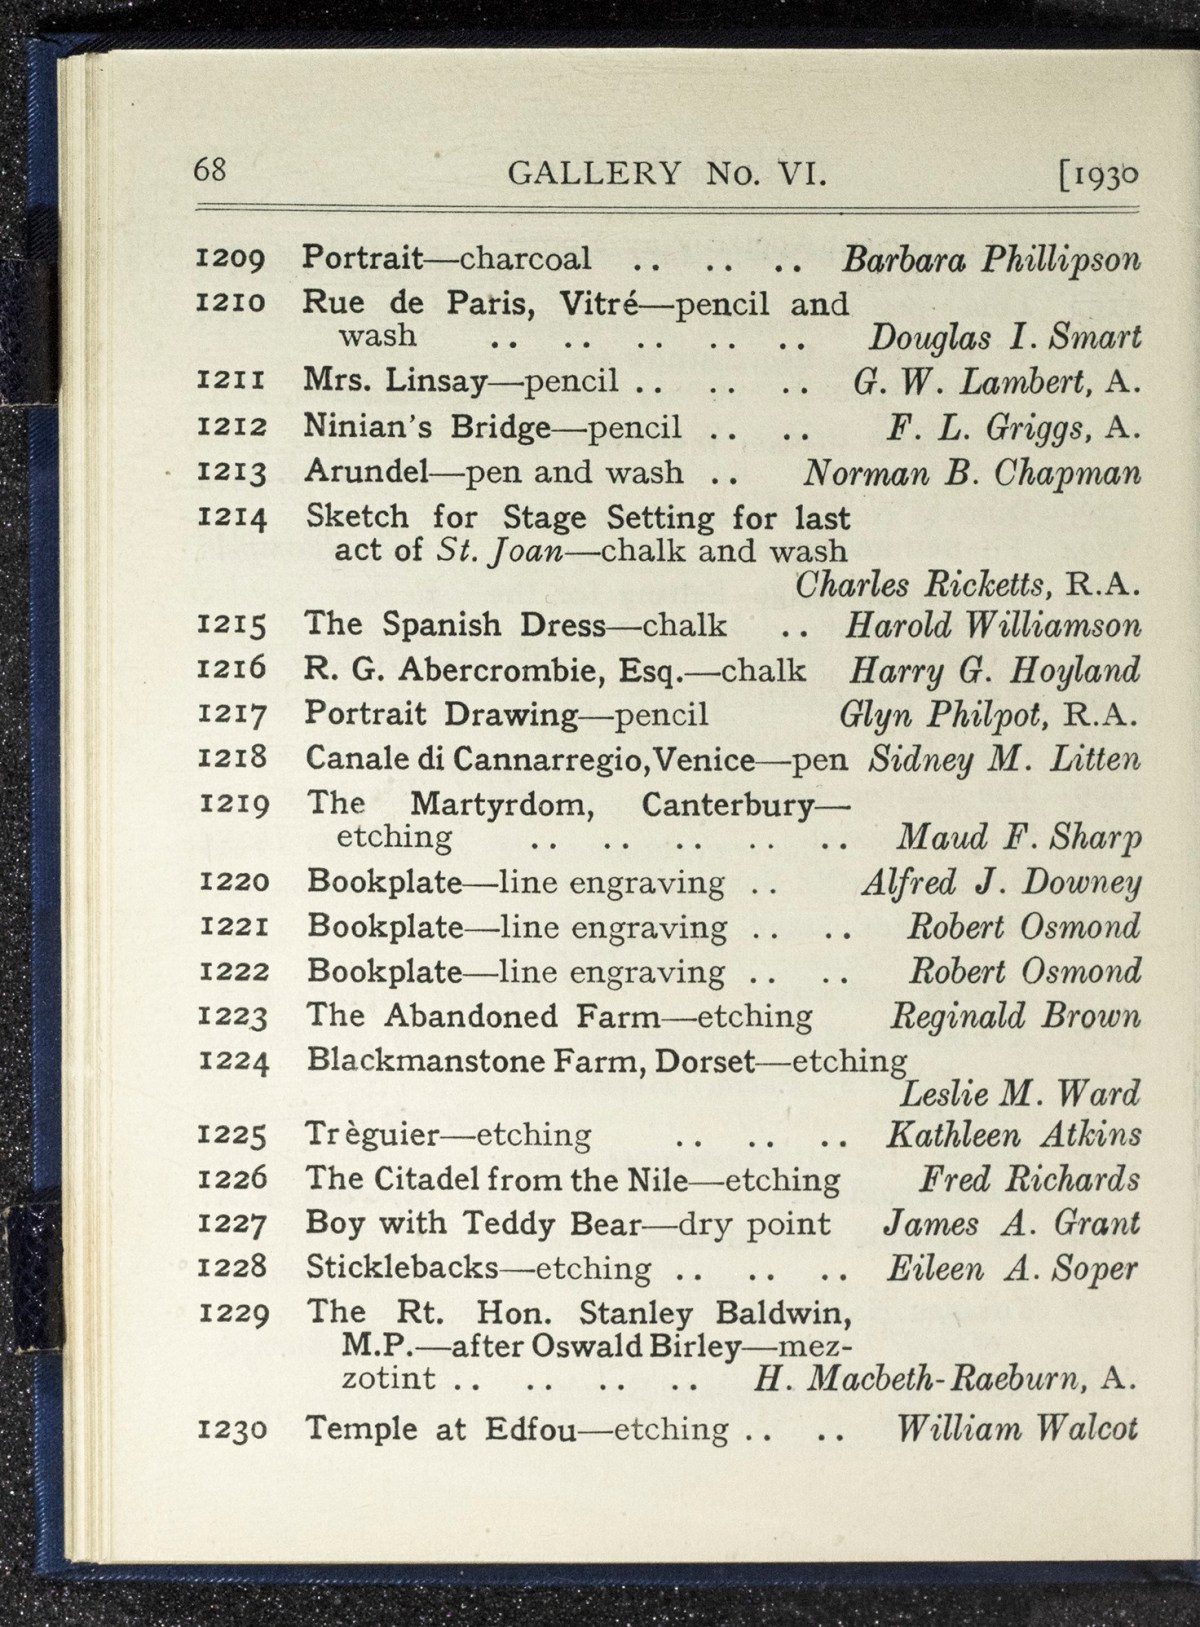 68 GALLERY No. VI. [1930
1209 Portrait—charcoal .. .. .. Barbara Phillipson
1210 Rue de Paris, Vitré—pencil and
wash .. .. .. .. .. Douglas I. Smart
1211 Mrs. Linsay—pencil .. .. .. G. W. Lambert, A.
1212 Ninian's Bridge—pencil .. .. F. L. Griggs, A.
1213 Arundel—pen and wash .. Norman B. Chapman
1214 Sketch for Stage Setting for last
act of St. Joan—chalk and wash
Charles Ricketts, R.A.
1215 The Spanish Dress—chalk .. Harold Williamson
1216 R. G. Abercrombie, Esq.—chalk Harry G. Hoyland
1217 Portrait Drawing—pencil Glyn Philpot, R.A.
1218 Canale di Cannarregio, Venice—pen Sidney M. Litten
1219 The Martyrdom, Canterbury—
etching .. .. .. .. .. Maud F. Sharp
1220 Bookplate—line engraving .. Alfred J. Downey
1221 Bookplate—line engraving .. .. Robert Osmond
1222 Bookplate—line engraving .. .. Robert Osmond
1223 The Abandoned Farm—etching Reginald Brown
1224 Blackmanstone Farm, Dorset—etching
Leslie M. Ward
1225 Trèguier—etching .. .. .. Kathleen Atkins
1226 The Citadel from the Nile—etching Fred Richards
1227 Boy with Teddy Bear—dry point James A. Grant
1228 Sticklebacks—etching .. .. .. Eileen A. Soper
1229 The Rt. Hon. Stanley Baldwin,
M.P.—after Oswald Birley—mez-
zotint .. .. .. .. H. Macbeth-Raeburn, A.
1230 Temple at Edfou—etching .. .. William Walcot